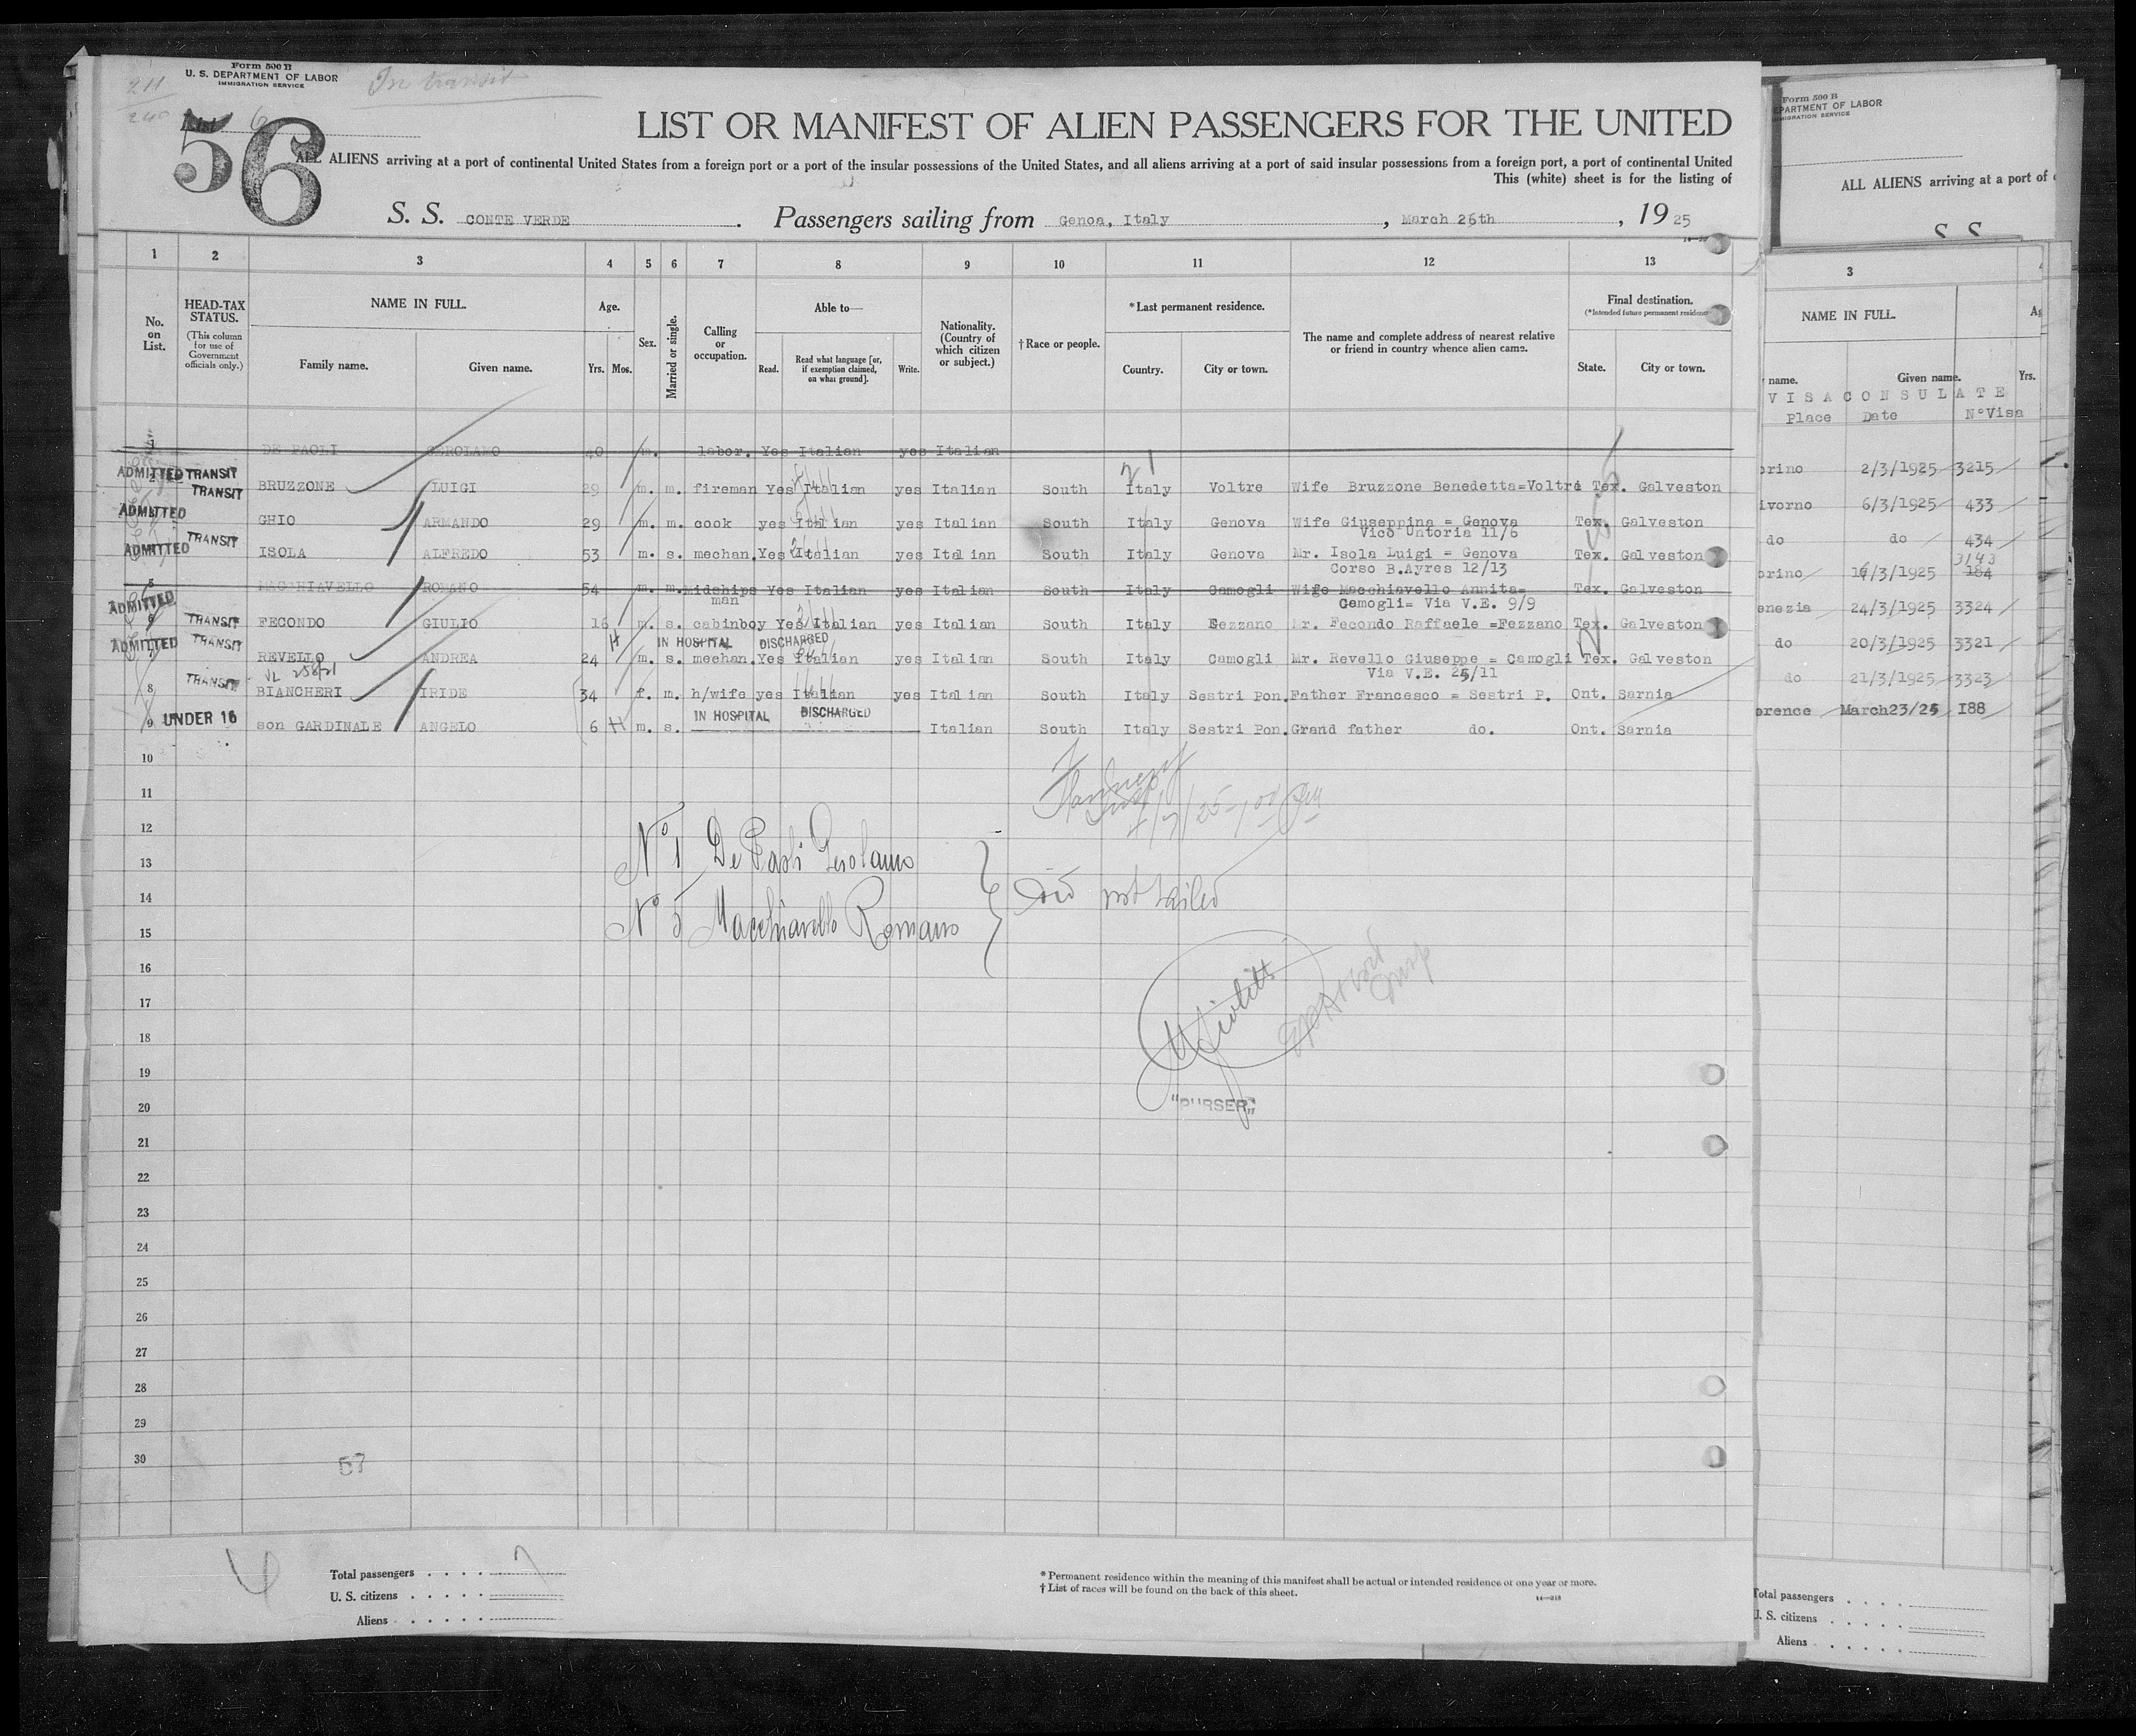 Form 500 B
U. S. DEPARTMENT OF LABOR
IMMIGRATION SERVICE
In transit
211
240
List 6
56
LIST OR MANIFEST OF ALIEN PASSENGERS FOR THE UNITED
ALL ALIENS arriving at a port of continental United States from a foreign port or a port of the insular possessions of the United States, and all aliens arriving at a port of said insular possessions from a foreign port, a port of continental United
This (white) sheet is for the listing of
S. S. CONTE VERDE. Passengers sailing from Genoa, Italy, March 26th, 1925
1 2 3 4 5 6 7 8 9 10 11 12 13
No. on List.
HEAD-TAX STATUS.
(This column for use of Government officials only.)
NAME IN FULL.
Family name. Given name.
Age.
Yrs. Mos.
Sex.
Married or single.
Calling or occupation.
Able to—
Read. Read what language [or, if exemption claimed, on what ground]. Write.
Nationality. (Country of which citizen or subject.)
† Race or people.
*Last permanent residence.
Country. City or town.
The name and complete address of nearest relative or friend in country whence alien came.
Final destination.
(*Intended future permanent residence
State. City or town.
1 DE PAOLI GEROLAMO 40 m. labor. Yes Italian yes Italian
ADMITTED TRANSIT
2 TRANSIT BRUZZONE LUIGI 29 m. m. fireman Yes Italian yes Italian South Italy Voltre Wife Bruzzone Benedetta=Voltre Tex. Galveston
ADMITTED GHIO ARMANDO 29 m. m. cook yes Italian yes Italian South Italy Genova Wife Giuseppina = Genova Tex. Galveston
Vico Untoria 11/6
TRANSIT
ADMITTED ISOLA ALFREDO 53 m. s. mechan. Yes Italian yes Italian South Italy Genova Mr. Isola Luigi = Genova Tex. Galveston
Corso B.Ayres 12/13
5 MACCHIAVELLO ROMANO 54 m. m. midships Yes Italian yes Italian South Italy Camogli Wife Macchiavello Annita= Tex. Galveston
man Camogli= Via V.E. 9/9
ADMITTED
6 TRANSIT FECONDO GIULIO 16 m. s. cabinboy Yes Italian yes Italian South Italy Fezzano Mr. Fecondo Raffaele =Fezzano Tex. Galveston
ADMITTED TRANSIT H IN HOSPITAL DISCHARGED
7 REVELLO ANDREA 24 m. s. mechan. Yes Italian yes Italian South Italy Camogli Mr. Revello Giuseppe = Camogli Tex. Galveston
Via V.E. 25/11
8 TRANSIT BIANCHERI IRIDE 34 f. m. h/wife yes Italian yes Italian South Italy Sestri Pon. Father Francesco = Sestri P. Ont. Sarnia
IN HOSPITAL DISCHARGED
9 UNDER 16 son GARDINALE ANGELO 6 H m. s. Italian South Italy Sestri Pon. Grand father do. Ont. Sarnia
10
11
12
13
14
15
16
17
18
19
20
21
22
23
24
25
26
27
28
29
30
No 1 De Paoli Gerolamo
No 5 Macchiavello Romano
Did not sailed
"PURSER"
57
Total passengers . . . . 7
U. S. citizens . . . . .
Aliens . . . . .
* Permanent residence within the meaning of this manifest shall be actual or intended residence of one year or more.
† List of races will be found on the back of this sheet.
14—218
Form 500 B
EPARTMENT OF LABOR
MIGRATION SERVICE
ALL ALIENS arriving at a port of
S S
3
NAME IN FULL.
name. Given name. Yrs.
VISA CONSULATE
Place Date N°Visa
orino 2/3/1925 3215
ivorno 6/3/1925 433
do do 434
3143
orino 16/3/1925 184
enezia 24/3/1925 3324
do 20/3/1925 3321
do 21/3/1925 3323
orence March23/25 188
Total passengers . . . .
U. S. citizens . . . .
Aliens . . . . .